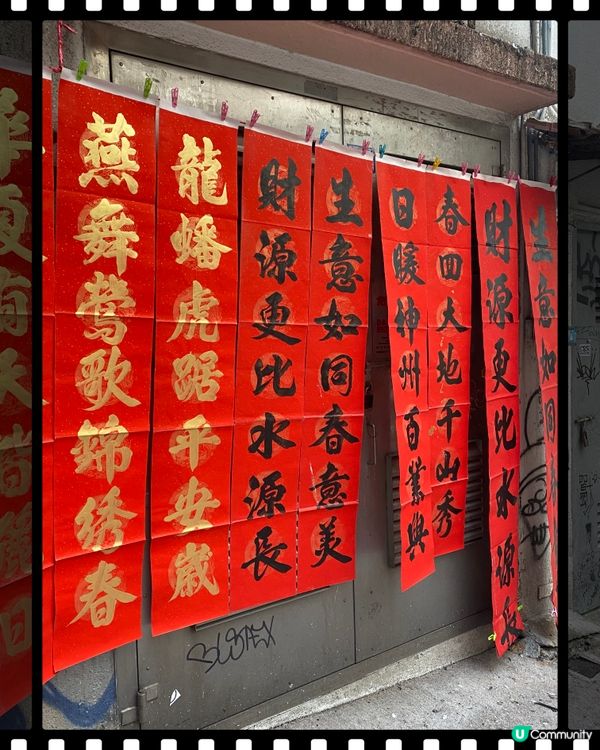 生意如同
財源更比水源長
春回大地千山秀
日暖神州百業興
生意如同春意美
財源更比水源長
龍蟠虎踞平安歲
燕舞鶯歌錦繡春
華夏有天皆麗日
U Community